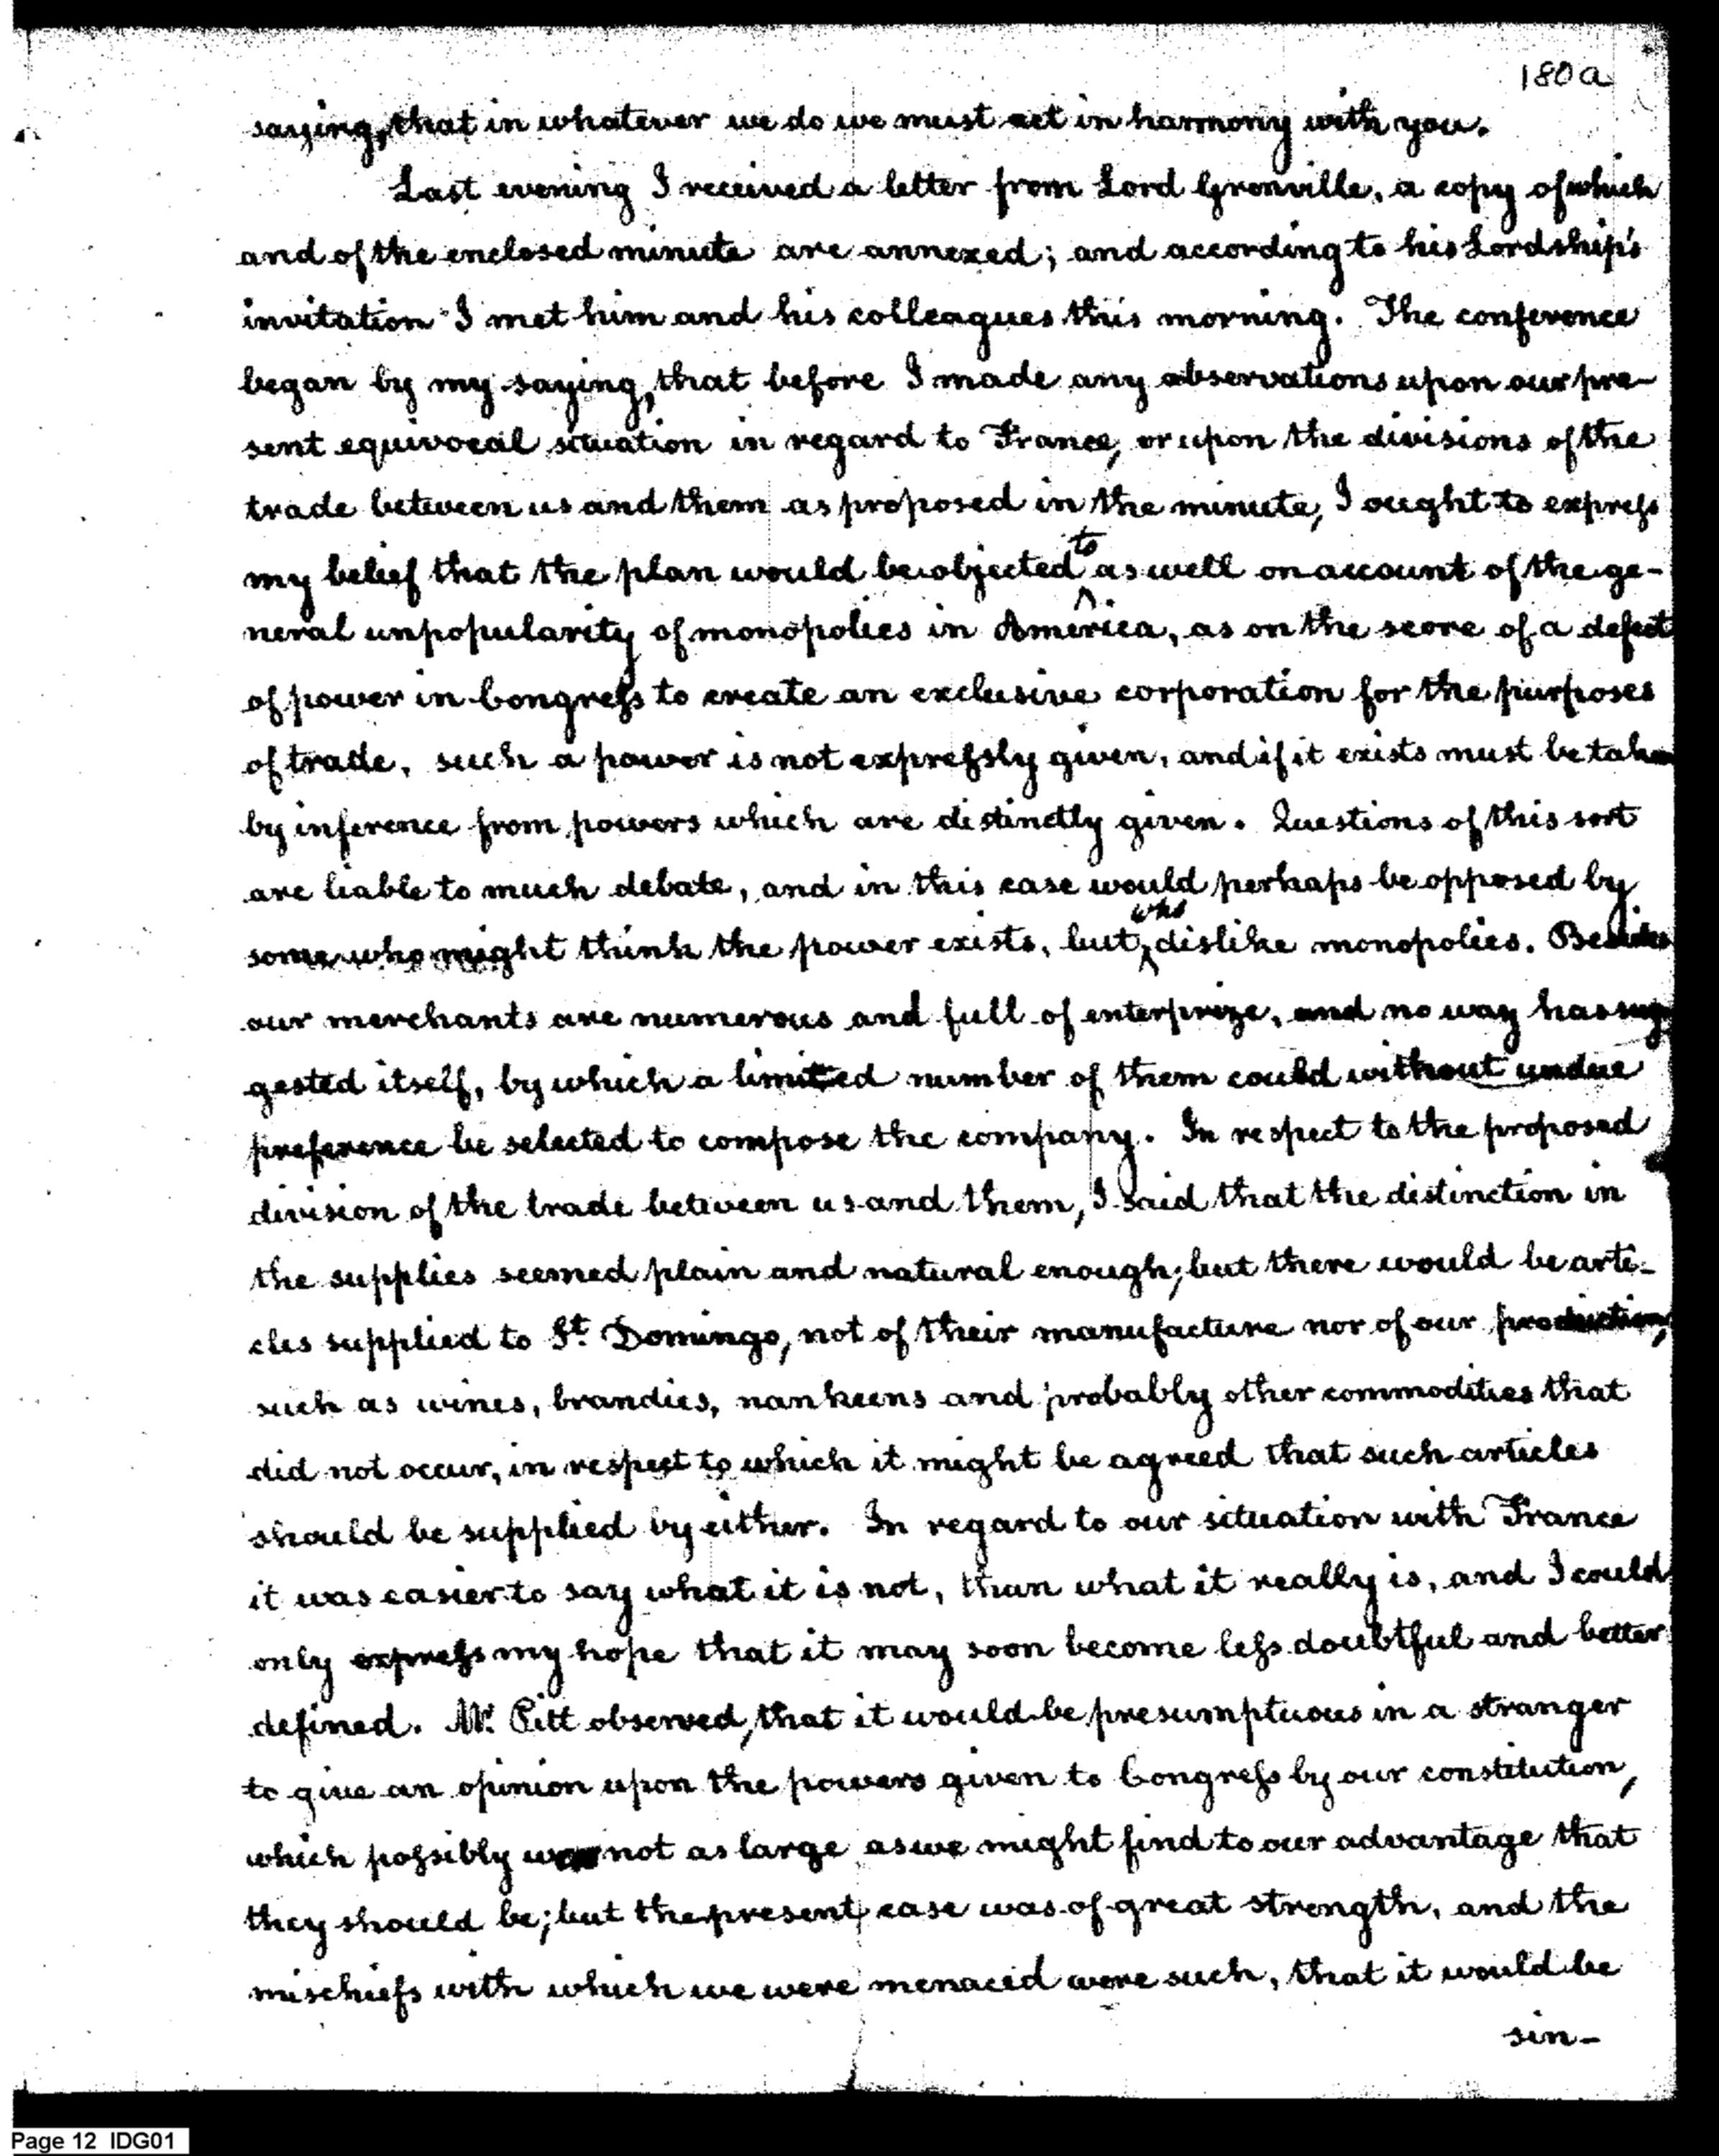 180a
saying, that in whatever we do we must act in harmony with you.
Last evening I received a letter from Lord Grenville, a copy of which
and of the enclosed minute are annexed; and according to his Lordship's
invitation I met him and his colleagues this morning. The conference
began by my saying, that before I made any observations upon our pre-
sent equivocal situation in regard to France, or upon the divisions of the
trade between us and them as proposed in the minute, I ought to express
my belief that the plan would be objected to as well on account of the ge-
neral unpopularity of monopolies in America, as on the score of a defect
of power in Congress to create an exclusive corporation for the purposes
of trade, such a power is not expressly given, and if it exists must be taken
by inference from powers which are distinctly given. Questions of this sort
are liable to much debate, and in this case would perhaps be opposed by
some who might think the power exists, but who dislike monopolies. Besides
our merchants are numerous and full of enterprize, and no way has sug
gested itself, by which a limited number of them could without undue
preference be selected to compose the company. In respect to the proposed
division of the trade between us and them, I said that the distinction in
the supplies seemed plain and natural enough; but there would be arti-
cles supplied to St. Domingo, not of their manufacture nor of our production,
such as wines, brandies, nankeens and probably other commodities that
did not occur, in respect to which it might be agreed that such articles
should be supplied by either. In regard to our situation with France
it was easier to say what it is not, than what it really is, and I could
only express my hope that it may soon become less doubtful and better
defined. Mr. Pitt observed, that it would be presumptuous in a stranger
to give an opinion upon the powers given to Congress by our constitution,
which possibly not as large as we might find to our advantage that
they should be; but the present case was of great strength, and the
mischiefs with which we were menaced were such, that it would be
sin-
Page 12 IDG01